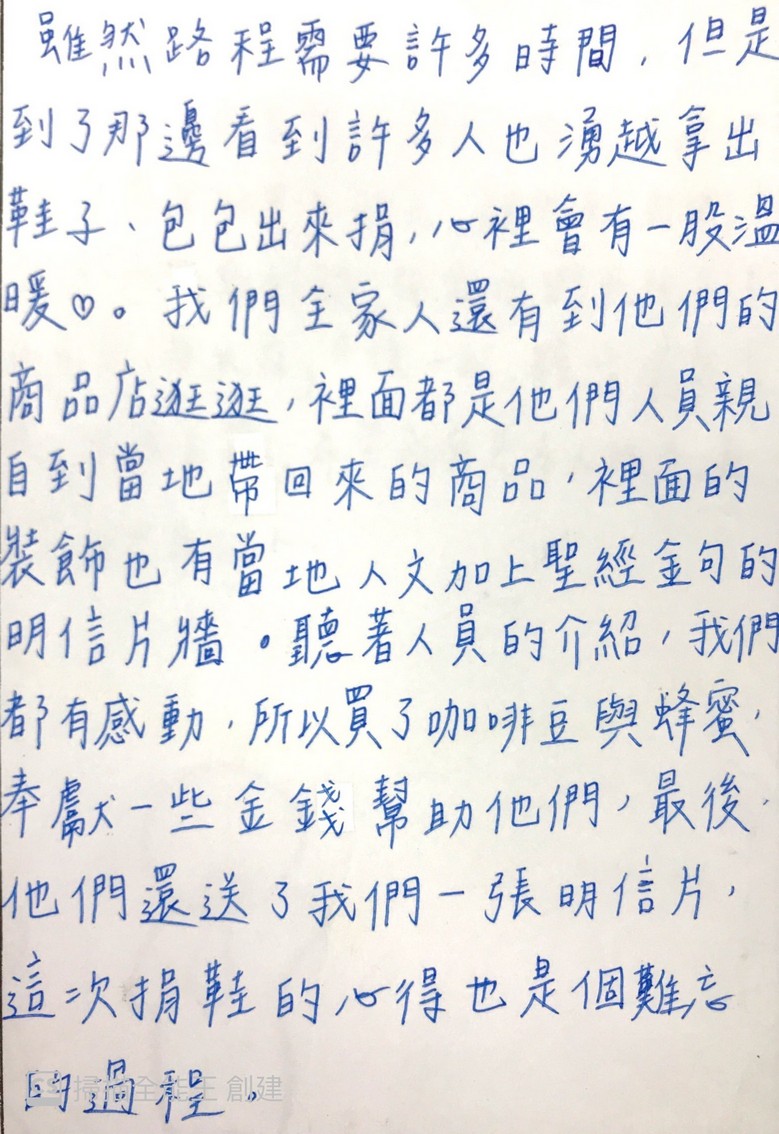 雖然路程需要許多時間，但是
到了那邊看到許多人也湧越拿出
鞋子、包包出來捐，心裡會有一股溫
暖♡。我們全家人還有到他們的
商品店逛逛，裡面都是他們人員親
自到當地帶回來的商品，裡面的
裝飾也有當地人文加上聖經金句的
明信片牆。聽著人員的介紹，我們
都有感動，所以買了咖啡豆與蜂蜜，
奉獻一些金錢幫助他們，最後，
他們還送了我們一張明信片，
這次捐鞋的心得也是個難忘
的過程。
掃描全能王 創建